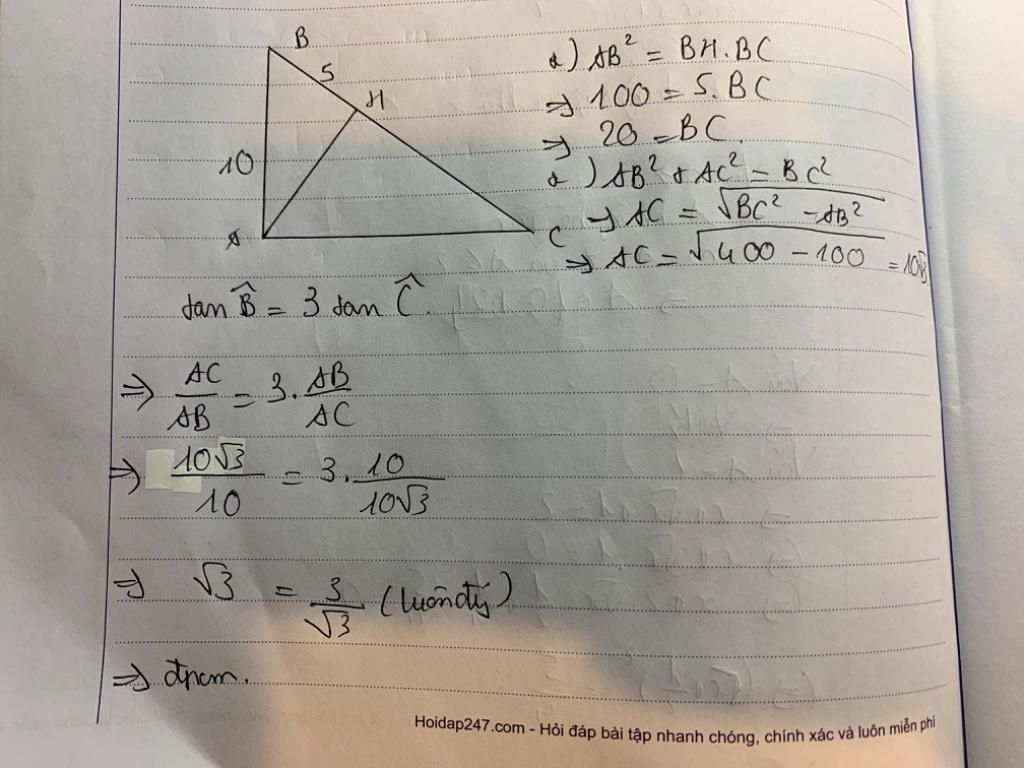 B
5
H
10
A
C
a) AB² = BH.BC
⇒ 100 = 5.BC
⇒ 20 = BC.
a) AB² + AC² = BC²
⇒ AC = √(BC² - AB²)
⇒ AC = √(400 - 100) = 10√3
tan B̂ = 3 tan Ĉ.
⇒ AC/AB = 3. AB/AC
⇒ 10√3/10 = 3. 10/10√3
⇒ √3 = 3/√3 (luôn đ)
⇒ đpcm.
Hoidap247.com - Hỏi đáp bài tập nhanh chóng, chính xác và luôn miễn phí